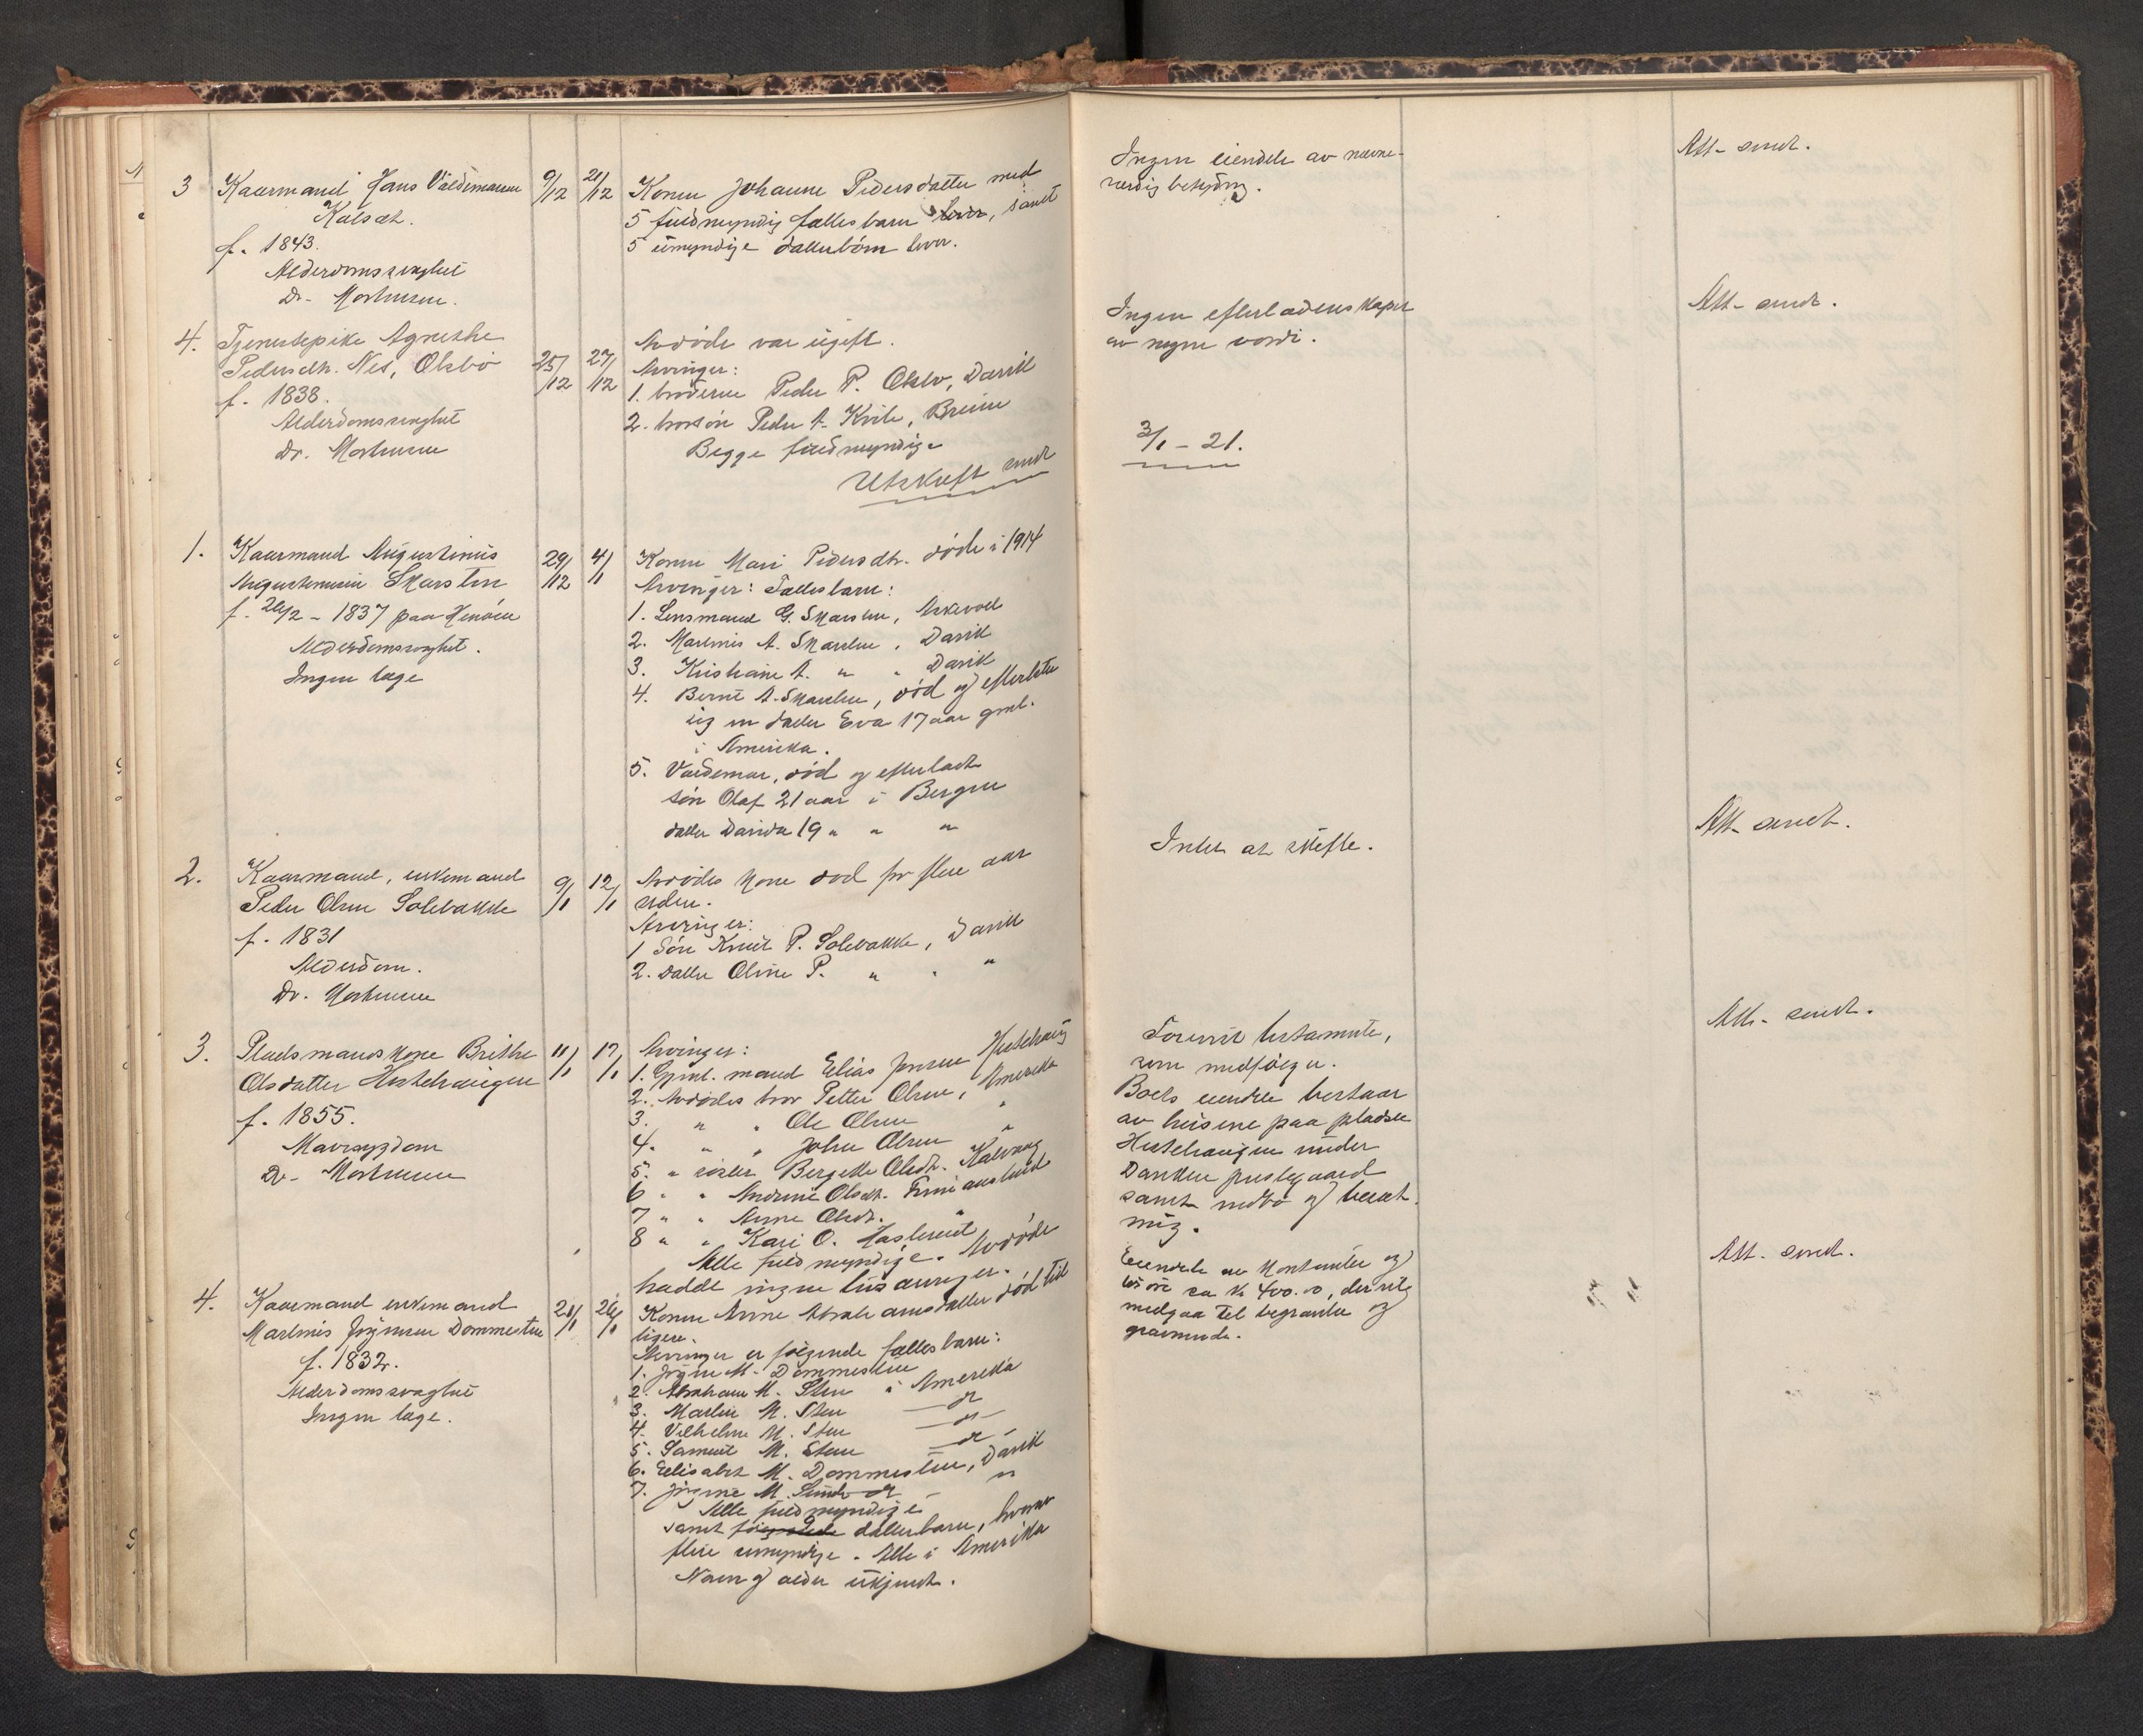 3 Kaarmand Hans Valdemarsen 9/12 21/12 Konen Johanne Pedersdatter med
Kalsæt. 5 fuldmyndig fællesbarn lever, samt
f. 1843. 5 umyndige datterbörn lever.
Alderdomssvaghet
Dr. Mortensen.
Ingen eiendele av nævne-
værdig betydning.
Att. sendt.
4. Tjenestepike Agnethe
Pedersdtr. Nes, Oksbö 25/12 27/12
f. 1838.
Alderdomssvaghet
Dr. Mortensen
Avdöde var ugift.
Arvinger:
1. broderen Peder P. Oksbö, Davik
2. brorsön Peder A. Kvile, Breim
Begge fuldmyndige
Utskrift sendt
Ingen efterladenskaper
av nogen værdi.
3/1 - 21.
Att. sendt.
1. Kaarmand Augustinus 29/12 4/1
Augustinusen Skarsten
f. 20/2 - 1837 paa Henöen
Alderdomssvaghet.
Ingen læge
Konen Mari Pedersdtr. döde i 1914
Arvinger: Fællesbarn:
1. Lensmand G. Skarsten, Askevold
2. Martinus A. Skarsten, Davik
3. Kristiane A. " " Davik
4. Bernt A. Skarsten, död og efterlater
sig en datter Eva 17 aar gml.
i Amerika.
5. Valdemar, död og efterladt
sön Olaf 21 aar i Bergen
datter Davida 19 " " "
2. Kaarmand, enkemand
Peder Olsen Solebakke 9/1 12/1
f. 1831
Alderdom.
Dr. Mortensen
Avdödes kone död for flere aar
siden.
Arvinger:
1 Sön Knut P. Solebakke, Davik
2. datter Oline P. " " "
Intet at skifte.
Att. sendt.
3. Pladsmandskone Brithe 11/1 17/1
Olsdatter Hestehaugen
f. 1855.
Mavesygdom
Dr. Mortensen
Arvinger:
1. Gjenl. mand Elias Jensen Hestehaug
2. Avdödes bror Petter Olsen, Amerika
3. " " Ole Olsen "
4. " " Johan Olsen "
5. " söster Bergette Olsdtr. Kalvaag
6 " " Andrine Olsdtr.
7 " " Anne Olsdtr. "
8 " " Kari O.
Alle fuldmyndige. Avdöde
hadde ingen livsarvinger.
testamente,
som medfölger.
Boets eiendele bestaar
av husene paa pladsen
Hestehaugen under
Daviken prestegaard
samt indbo og besæt-
ning.
Att. sendt.
4. Kaarmand enkemand 21/1 26/1
Martinus Jörgensen Dommesten
f. 1832.
Alderdomssvaghet
Ingen læge.
Konen Anne Abrahamsdatter död tid
ligere.
Arvinger er fölgende fællesbarn:
1. Jörgen M. Dommesten
2. Abraham M. Sten i Amerika
3. Martin M. Sten — do
4. Vilhelm M. Sten — do —
5. Samuel M. Sten — do —
6. Elisabet M. Dommesten, Davik
7. Jörgine M. "
Alle fuldmyndige
samt fölgende datterbarn, hvorav
flere umyndige. Alle i Amerika
Navn og alder ukjendt.
Eiendele av kontanter og
lösöre ca kr 400.00, der vil
medgaa til begravelse og
gravminde.
Att. sendt.